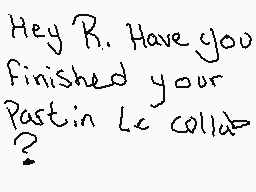 Hey R. Have you
finished your
Part in Lc collab
?